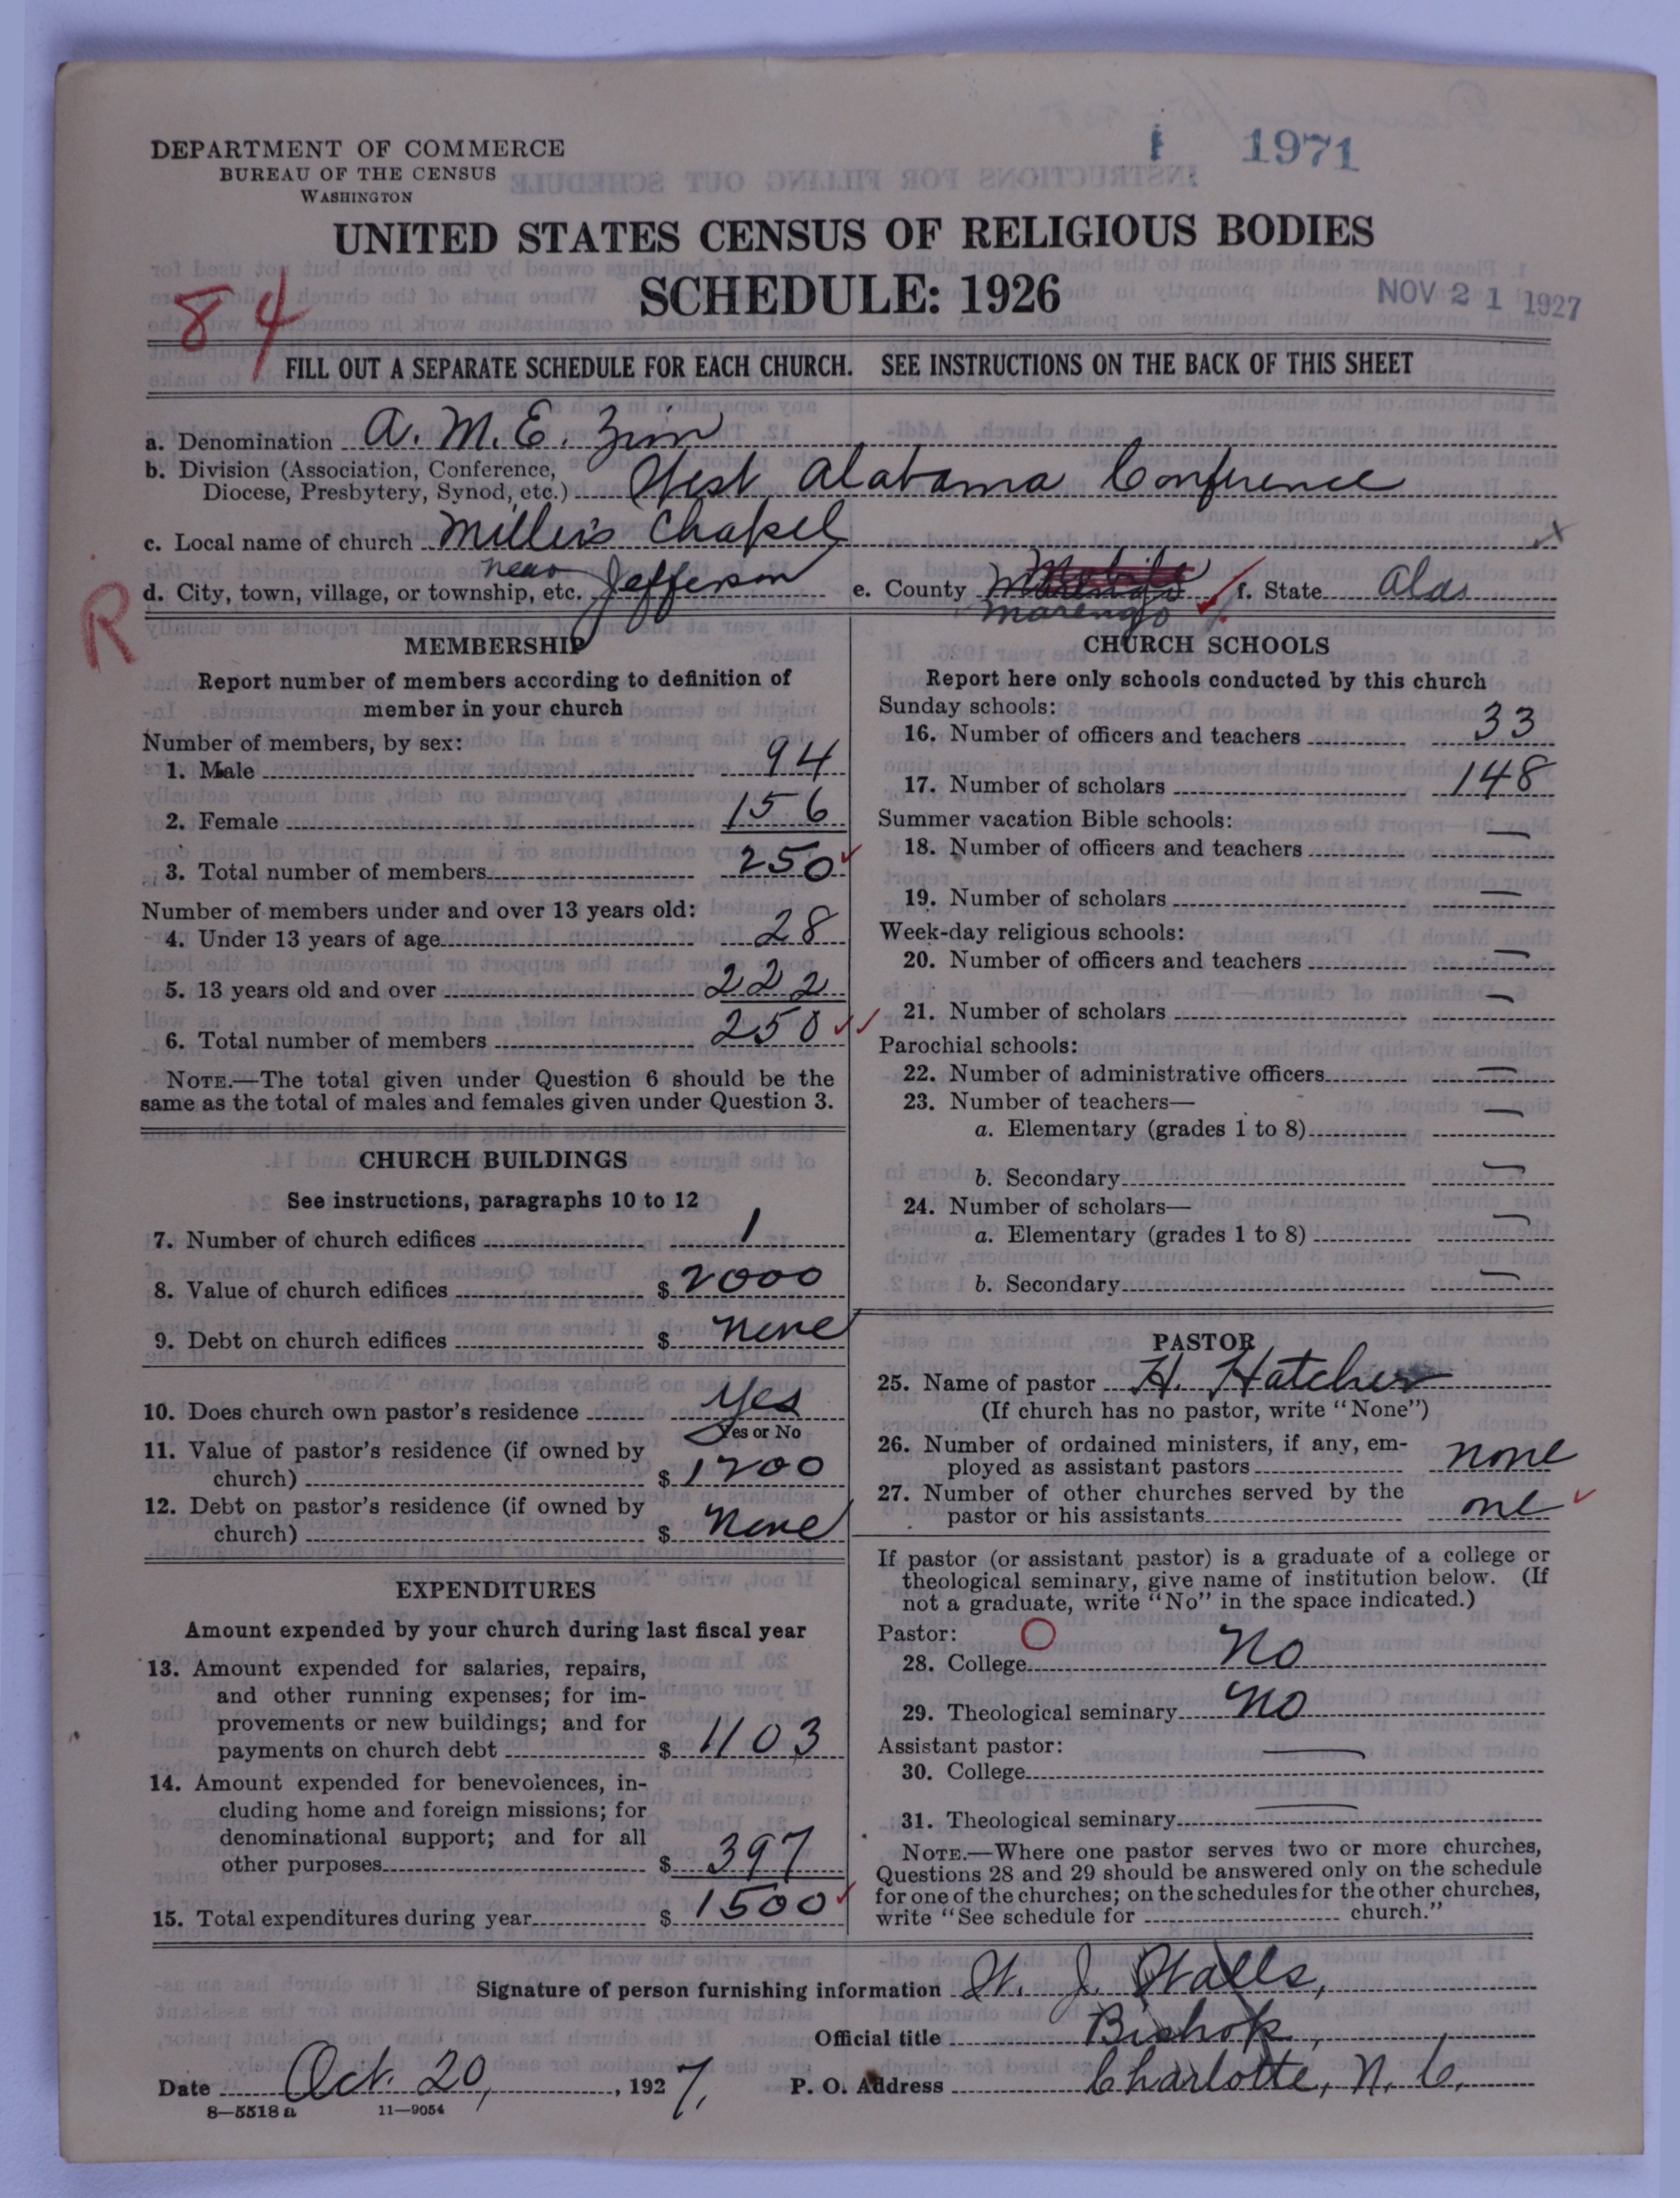 1971
DEPARTMENT OF COMMERCE
BUREAU OF THE CENSUS
WASHINGTON
UNITED STATES CENSUS OF RELIGIOUS BODIES
SCHEDULE: 1926
NOV 21 1927
84
FILL OUT A SEPARATE SCHEDULE FOR EACH CHURCH. SEE INSTRUCTIONS ON THE BACK OF THIS SHEET
a. Denomination A. M. E. Zion
b. Division (Association, Conference,
Diocese, Presbytery, Synod, etc.) West Alabama Conference
c. Local name of church Miller's Chapel
d. City, town, village, or township, etc. near Jefferson e. County Marengo f. State Ala.
R
MEMBERSHIP
Report number of members according to definition of
member in your church
Number of members, by sex:
1. Male 94
2. Female 156
3. Total number of members 250
Number of members under and over 13 years old:
4. Under 13 years of age 28
5. 13 years old and over 222
6. Total number of members 250
NOTE.—The total given under Question 6 should be the
same as the total of males and females given under Question 3.
CHURCH BUILDINGS
See instructions, paragraphs 10 to 12
7. Number of church edifices 1
8. Value of church edifices $ 2000
9. Debt on church edifices $ None
10. Does church own pastor's residence Yes
Yes or No
11. Value of pastor's residence (if owned by
church) $ 1200
12. Debt on pastor's residence (if owned by
church) $ None
EXPENDITURES
Amount expended by your church during last fiscal year
13. Amount expended for salaries, repairs,
and other running expenses; for im-
provements or new buildings; and for
payments on church debt $ 1103
14. Amount expended for benevolences, in-
cluding home and foreign missions; for
denominational support; and for all
other purposes $ 397
15. Total expenditures during year $ 1500
CHURCH SCHOOLS
Report here only schools conducted by this church
Sunday schools:
16. Number of officers and teachers 33
17. Number of scholars 148
Summer vacation Bible schools:
18. Number of officers and teachers —
19. Number of scholars —
Week-day religious schools:
20. Number of officers and teachers —
21. Number of scholars —
Parochial schools:
22. Number of administrative officers —
23. Number of teachers—
a. Elementary (grades 1 to 8) —
b. Secondary —
24. Number of scholars—
a. Elementary (grades 1 to 8) —
b. Secondary —
PASTOR
25. Name of pastor H. Hatcher
(If church has no pastor, write "None")
26. Number of ordained ministers, if any, em-
ployed as assistant pastors none
27. Number of other churches served by the
pastor or his assistants one
If pastor (or assistant pastor) is a graduate of a college or
theological seminary, give name of institution below. (If
not a graduate, write "No" in the space indicated.)
Pastor:
28. College No
29. Theological seminary No
Assistant pastor:
30. College —
31. Theological seminary —
NOTE.—Where one pastor serves two or more churches,
Questions 28 and 29 should be answered only on the schedule
for one of the churches; on the schedules for the other churches,
write "See schedule for church."
Signature of person furnishing information W. J. Walls,
Official title Bishop,
Date Oct. 20, 1927, P. O. Address Charlotte, N. C.
8—5518 a 11—9054